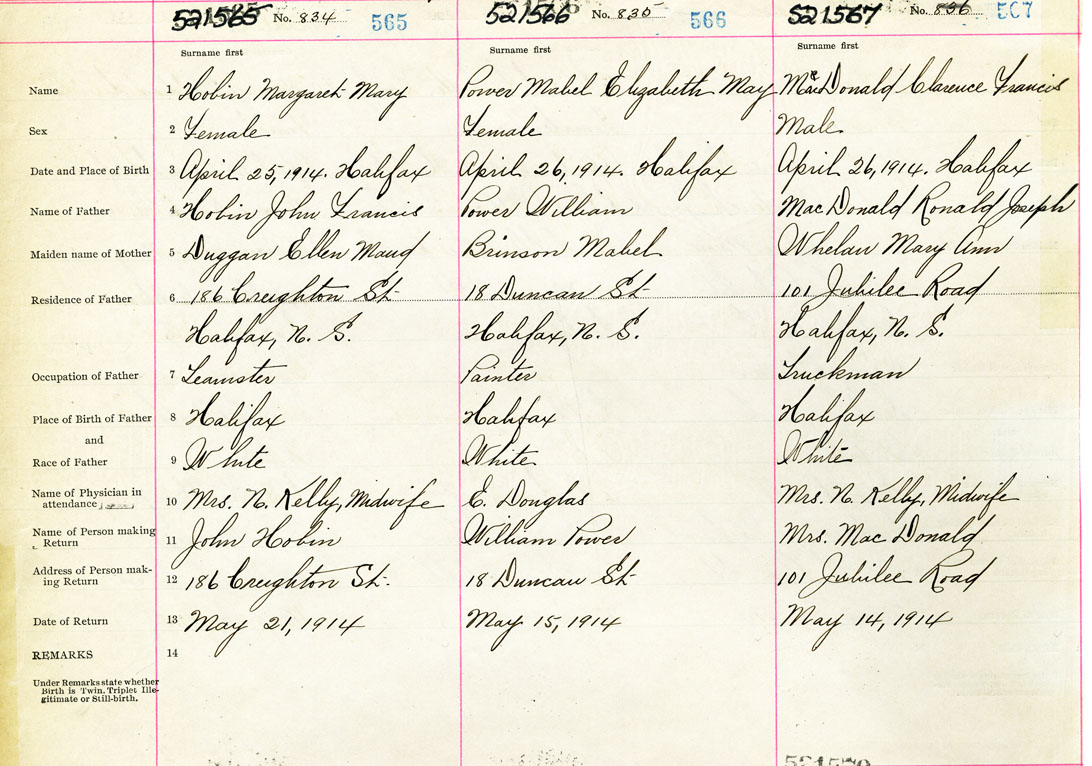 521565 No. 834 565 521566 No. 835 566 521567 No. 836 567
Surname first Surname first Surname first
Name 1 Hobin Margaret Mary Power Mabel Elizabeth May MacDonald Clarence Francis
Sex 2 Female Female Male
Date and Place of Birth 3 April 25, 1914. Halifax April 26, 1914. Halifax April 26, 1914. Halifax
Name of Father 4 Hobin John Francis Power William MacDonald Ronald Joseph
Maiden name of Mother 5 Duggan Ellen Maud Brinson Mabel Whelan Mary Ann
Residence of Father 6 186 Creighton St. 18 Duncan St. 101 Jubilee Road
Halifax, N. S. Halifax, N. S. Halifax, N. S.
Occupation of Father 7 Teamster Painter Truckman
Place of Birth of Father 8 Halifax Halifax Halifax
and
Race of Father 9 White White White
Name of Physician in
attendance 10 Mrs. N. Kelly, Midwife E. Douglas Mrs. N. Kelly, Midwife
Name of Person making
Return 11 John Hobin William Power Mrs. Mac Donald
Address of Person mak-
ing Return 12 186 Creighton St. 18 Duncan St. 101 Jubilee Road
Date of Return 13 May 21, 1914 May 15, 1914 May 14, 1914
REMARKS 14
Under Remarks state whether
Birth is Twin. Triplet Ille-
gitimate or Still-birth.